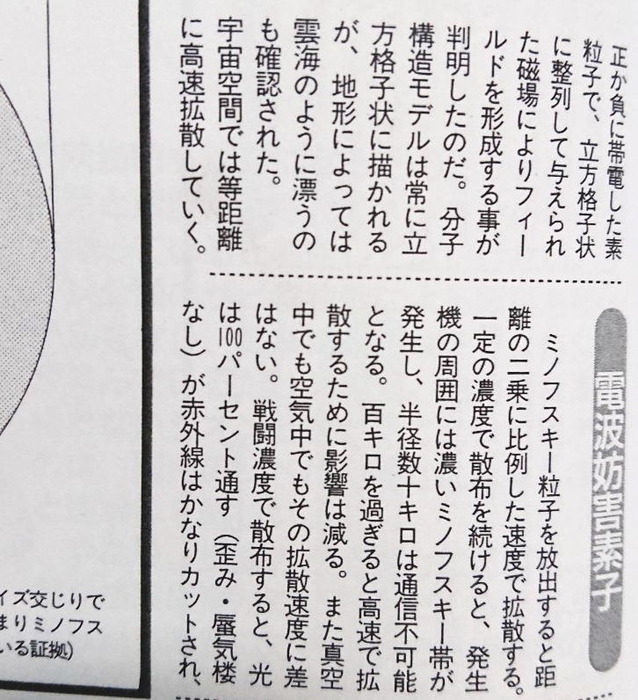 正か負に帯電した素
粒子で、立方格子状
に整列して与えられ
た磁場によりフィー
ルドを形成する事が
判明したのだ。分子
構造モデルは常に立
方格子状に描かれる
が、地形によっては
雲海のように漂うの
も確認された。
宇宙空間では等距離
に高速拡散していく。
電波妨害素子
ミノフスキー粒子を放出すると距
離の二乗に比例した速度で拡散する。
一定の濃度で散布を続けると、発生
機の周囲には濃いミノフスキー帯が
発生し、半径数十キロは通信不可能
となる。百キロを過ぎると高速で拡
散するために影響は減る。また真空
中でも空気中でもその拡散速度に差
はない。戦闘濃度で散布すると、光
は100パーセント通す（歪み・蜃気楼
なし）が赤外線はかなりカットされ、
イズ交じりで
まりミノフス
いる証拠）